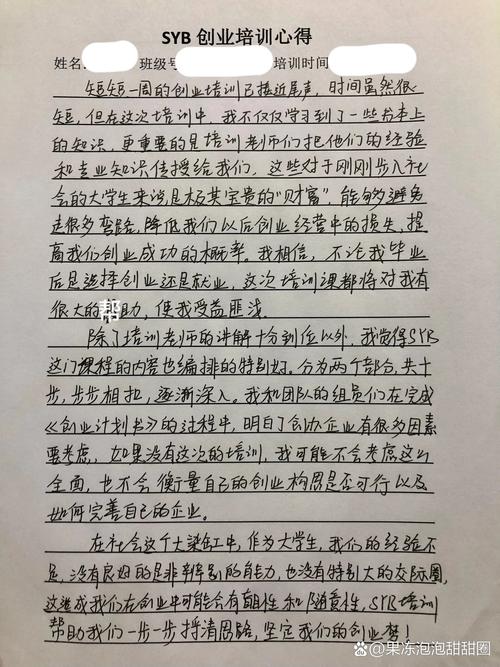 SYB 创业培训心得
姓名: 班级号 培训时间
短短一周的创业培训已接近尾声，时间虽然很
短，但在这次培训中，我不仅仅学习到了一些书本上
的知识，更重要的是培训老师们把他们的经验
和专业知识传授给我们，这些对于刚刚步入社
会的大学生来说是极其宝贵的“财富”，能够避免
走很多弯路，降低我们以后创业经营中的损失，提
高我们创业成功的概率。我相信，不论我毕业
后是选择创业还是就业，这次培训课都将对我有
很大的帮助，使我受益匪浅。
除了培训老师的讲解十分到位以外，我觉得SYB
这门课程的内容也编排的特别好。分为两个部分，共十
步，步步相扣，逐渐深入。我和团队的组员们在完成
《创业计划书》的过程中，明白了创办企业有很多因素
要考虑，如果没有这次的培训，我可能不会考虑这么
全面，也不会衡量自己的创业构思是否可行以及
如何完善自己的企业。
在社会这个大染缸中，作为大学生，我们的经验不
足，没有良好的是非辨别的能力，也没有特别大的交际圈，
这造成我们在创业中可能会有盲目性和随意性，SYB培训
帮助我们一步一步捋清思路，坚定我们的创业梦！
@果冻泡泡甜甜圈